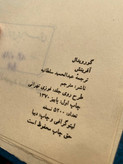 گور ویدال
آفرینش
ترجمهٔ عبدالحمید سلطانیه
ناشر: مترجم
طرح روی جلد: فوزی تهرانی
چاپ اول: پاییز ۱۳۷۰
تعداد: ۵۵۰۰ نسخه
لیتوگرافی و چاپ: دیبا
حق چاپ محفوظ است